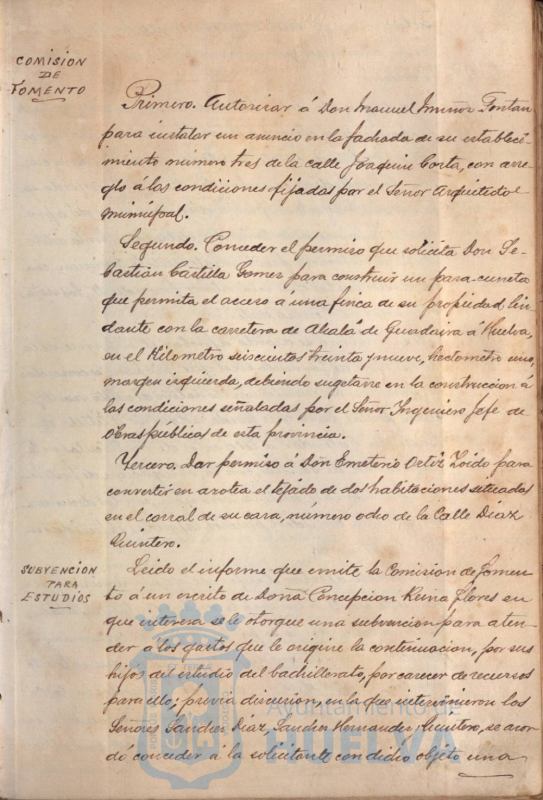 COMISION
DE
FOMENTO
Primero. Autorizar á Don Manuel Muñoz Fontan
para instalar un anuncio en la fachada de su estableci-
miento número tres de la calle Joaquin Costa, con arre-
glo á las condiciones fijadas por el Señor Arquitecto
municipal.
Segundo. Conceder el permiso que solicita Don Se-
bastián Castilla Gomez para construir un para-cuneta
que permita el acceso á una finca de su propiedad lin-
dante con la carretera de Alcalá de Guadaira á Huelva,
en el Kilometro seiscientos treinta y nueve, hectometro uno,
margen izquierda, debiendo sugetarse en la construccion á
las condiciones señaladas por el Señor Ingeniero Jefe de
Obras públicas de esta provincia.
Tercero. Dar permiso á Don Emeterio Ortiz Zoido para
convertir en azotea el tejado de dos habitaciones situadas
en el corral de su casa, número ocho de la Calle Diaz
Quintero.
SUBVENCION
PARA
ESTUDIOS
Leido el informe que emite la Comision de Fomen-
to á un escrito de Doña Concepcion Flores en
que interesa se le otorgue una subvencion para aten-
der á los gastos que le origine la continuacion, por sus
hijos del estudio del bachillerato, por carecer de recursos
para ello; previa discusion, en la que intervinieron los
Señores Sanchez Diaz, Sanchez Hernandez y Quintero, se acor-
dó conceder á la solicitante con dicho objeto una
Ayuntamiento de
HUELVA